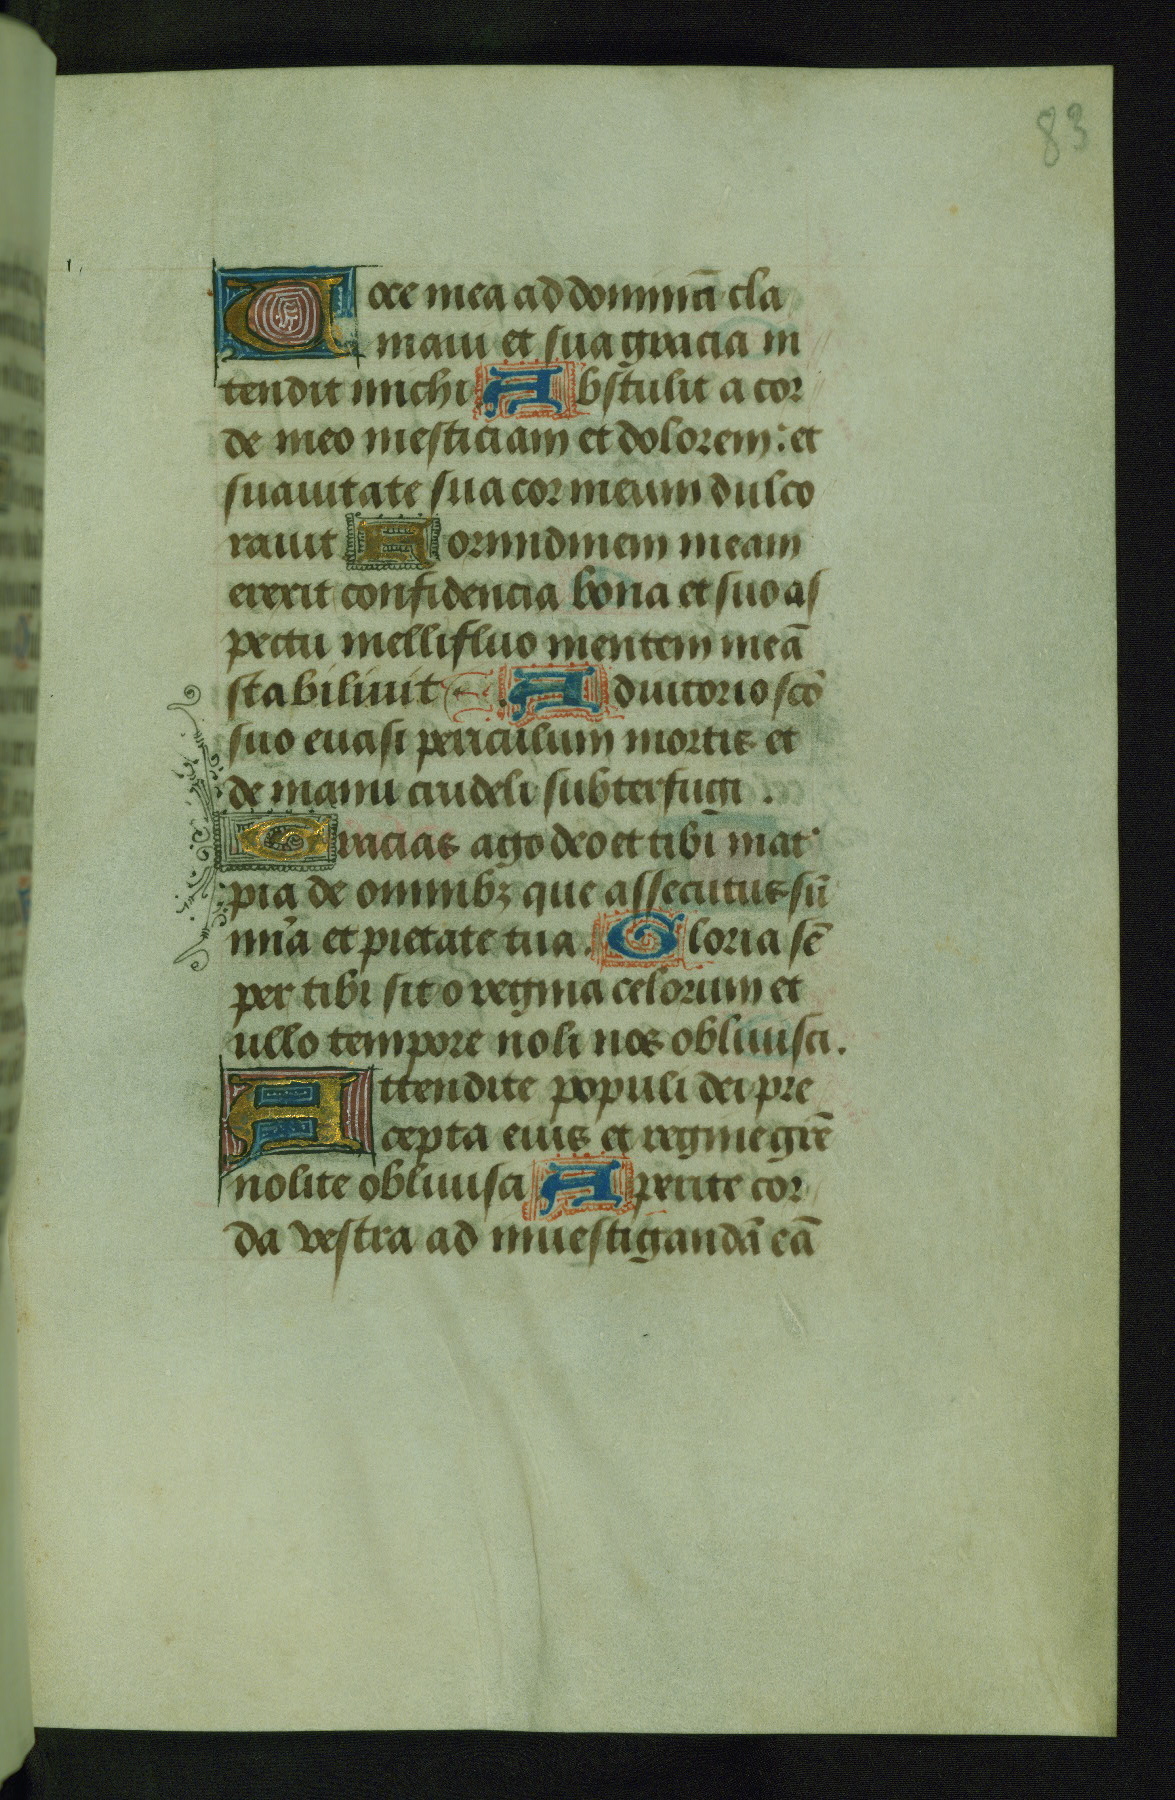 83
Uoce mea ad dominā cla
maui et sua gracia in
tendit michi Abstulit a cor
de meo mesticiam et dolorem: et
suauitate sua cor meum dulco
rauit Formidinem meam
erexit confidencia bona et suo as
pectu mellifluo mentem meā
stabiliuit. Adiutorio scō
suo euasi periculum mortis et
de manu crudeli subterfugi.
Gracias ago deo et tibi mat'
pia de omnibꝫ que assecutus sū
mīa et pietate tua. Gloria sē
per tibi sit o regina celorum et
ullo tempore noli nos obliuisci.
Attendite populi dei pre
cepta eius et regine grē
nolite obliuisci Aperite cor
da vestra ad inuestigandā eā